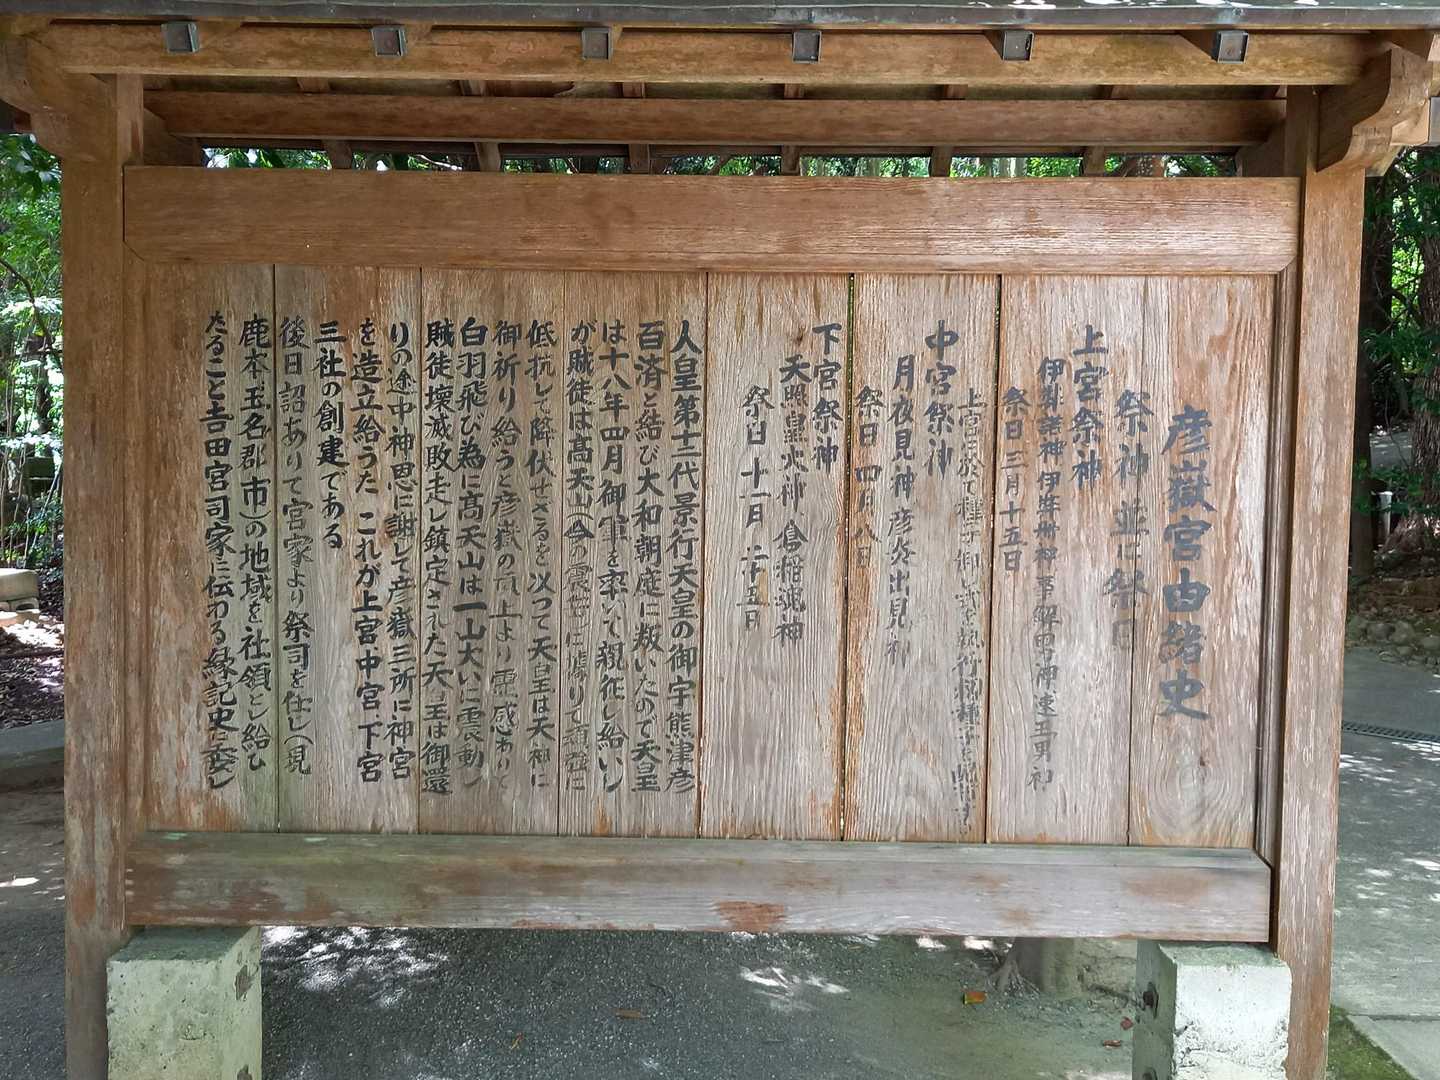 彦嶽宮由緒史
祭神並に祭日
上宮祭神
伊弉諾神 伊弉冊神 事解男神 速玉男神
祭日 三月十五日
上宮に於て種子
中宮祭神
月夜見神 彦炎出見神
祭日 四月八日
下宮祭神
天照皇大神 倉稲魂神
祭日 十一月 二十五日
人皇第十二代景行天皇の御宇熊津彦
百済と結び大和朝庭に叛いたので天皇
は十八年四月御軍を率いて親征し給いし
が賊徒は高天山(今の震岳)に據りて頑強に
低抗して降伏せざるを以つて天皇は天神に
御祈り給うと彦嶽の頂上より霊感ありて
白羽飛び為に高天山は一山大いに震動し
賊徒壊滅敗走し鎮定された天皇は御還
りの途中神恩に謝して彦嶽三所に神宮
を造立給うた これが上宮中宮、下宮
三社の創建である
後日詔ありて宮家より祭司を任し(現
鹿本玉名郡市)の地域を社領とし給ひ
たること吉田宮司家に伝わる縁記史に委し